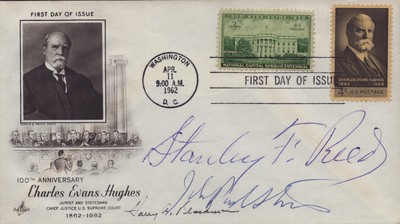 FIRST DAY OF ISSUE
WASHINGTON
APR.
11
9:00 A.M.
1962
D.C.
1800 WASHINGTON 1950
NATIONAL CAPITAL SESQUICENTENNIAL
FIRST DAY OF ISSUE
CHARLES EVANS HUGHES
1862 1962
4¢ U.S. POSTAGE
100TH ANNIVERSARY
Charles Evans Hughes
JURIST AND STATESMAN
CHIEF JUSTICE U.S. SUPREME COURT
1862-1962
Stanley F. Reed
Harry A. Blackmun